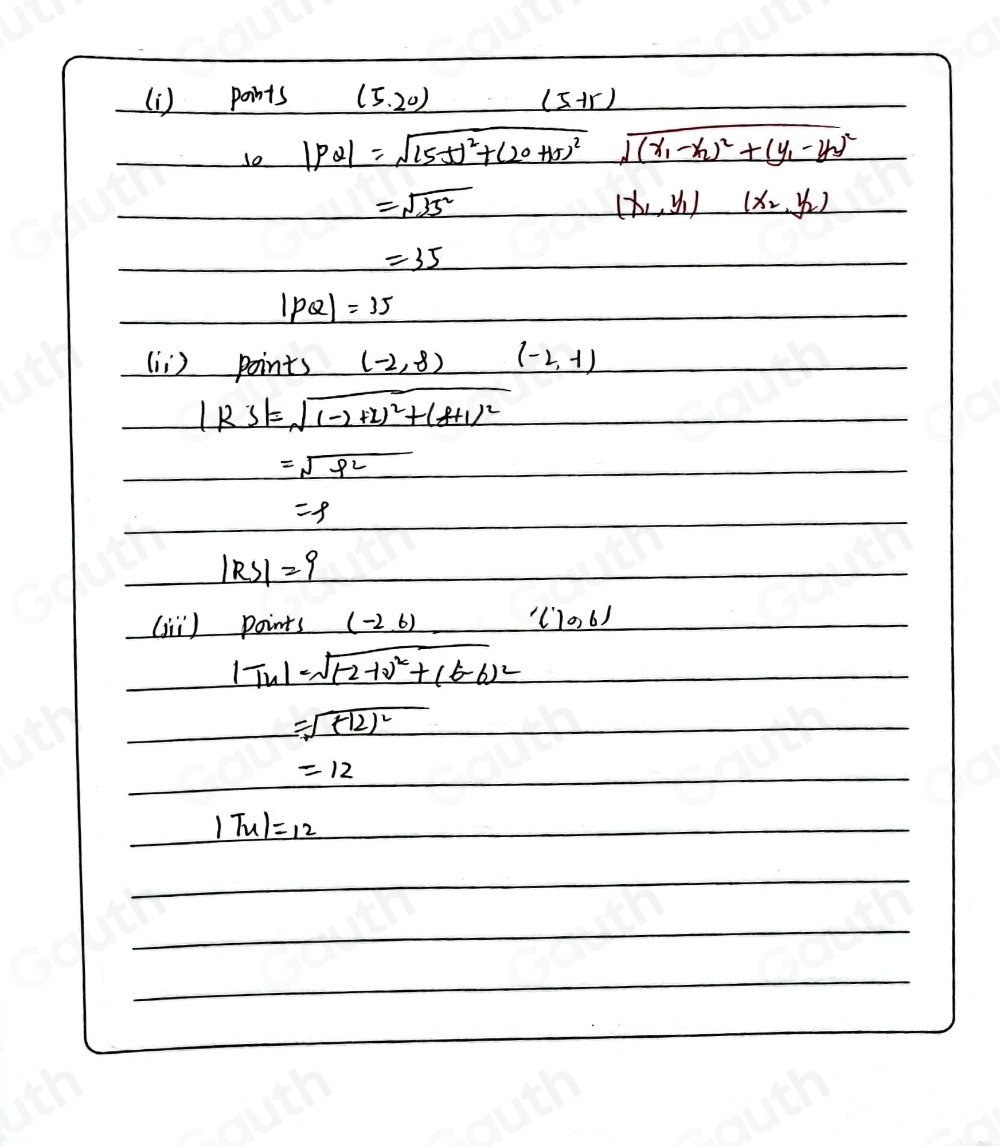 (i) points (5.20) (5-15)
so |PQ| = √(5-5)²+(20+15)² √(x₁-x₂)²+(y₁-y₂)²
= √35² (x₁, y₁) (x₂, y₂)
= 35
|PQ| = 35
(ii) points (-2, 8) (-2, -1)
|RS| = √(-2+2)²+(8+1)²
= √9²
= 9
|RS| = 9
(iii) points (-2 6) (10, 6)
|TU| = √(-2-10)²+(6-6)²
= √(-12)²
= 12
|TU| = 12